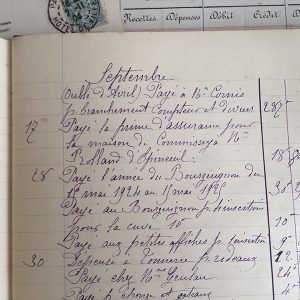 Recettes. Dépenses. Débit Crédit
Septembre
Oublié d'Avril, Payé à Mr Cornis
p. branchement compteur et divers 287
17 Payé la prime d'assurance pour
la maison de Commissey à Mr
Rolland d'Epineuil 18
28 Payé l'année du Bourguignon du
1er mai 1924 au 1er mai 1925 30
Payé au Bourguignon p. insertion
pour la cuve 10
Payé aux petites affiches p. insertion 9
30 Dépense à Tonnerre p. rideaux 12
Payé chez Mme 24
Payé p. et gateaux